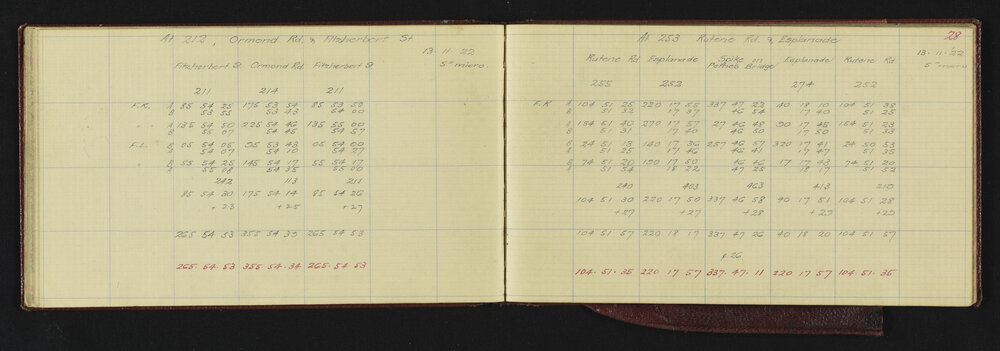 At 212, Ormond Rd. & Fitzherbert St
13·11·22
5" micro.
Fitzherbert St. Ormond Rd. Fitzherbert St
211 214 211
F.R. A 85 54 25 175 53 54 85 53 50
B 53 55 53 43 54 00
A 135 54 50 225 54 46 135 55 00
B 55 07 54 45 54 57
F.L. A 05 54 05 95 53 43 05 54 00
B 54 07 54 10 54 27
55 54 25 145 54 17 55 54 17
55 08 54 35 55 00
242 113 211
85 54 30 175 54 14 85 54 26
+23 +25 +27
265 54 53 355 54 39 265 54 53
265·54·53 355·54·34 265·54·53
28
At 253 Rutene Rd. & Esplanade
13·11·22
5" micro
Rutene Rd Esplanade Spike on Pettieb Bridge Esplanade Rutene Rd
255 252 274 252
F.R. A 104 51 25 220 17 55 337 47 22 40 18 10 104 51 38
B 51 32 17 37 46 54 17 40 51 25
A 154 51 40 270 17 57 27 46 48 90 17 45 154 51 23
B 51 31 17 40 46 50 17 50 51 33
24 51 13 140 17 36 257 46 57 320 17 41 24 50 53
51 25 17 46 46 41 17 47 51 35
74 51 20 190 17 50 46 46 17 43 74 51 20
51 54 18 22 47 25 18 17 51 52
240 403 463 413 210
104 51 30 220 17 50 337 46 58 40 17 51 104 51 28
+27 +27 +28 +29 +29
104 51 57 220 18 17 337 47 26 40 18 20 104 51 57
& 26.
104·51·35 220 17 57 337·47·11 220 17 57 104·51·35